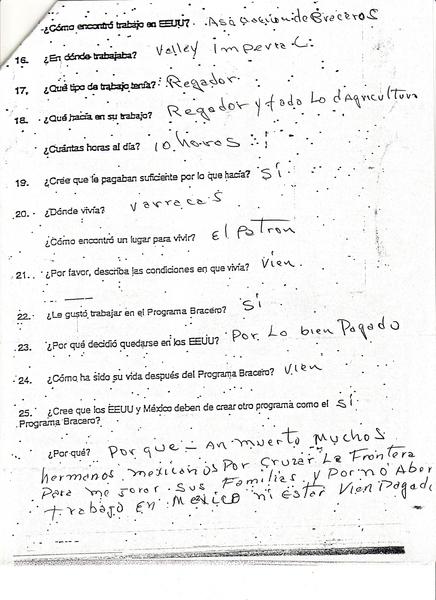 ¿Cómo encontró trabajo en EEUU? Asociacion de Braceros
16. ¿En dónde trabajaba? Valley Imperial.
17. ¿Qué tipo de trabajo tenía? Regador
18. ¿Qué hacía en su trabajo? Regador y todo Lo d Agricultura
¿Cuántas horas al día? 10 horas
19. ¿Cree que le pagaban suficiente por lo que hacía? Sí
20. ¿Dónde vivía? varracas
¿Cómo encontró un lugar para vivir? El patron
21. ¿Por favor, describa las condiciones en que vivía? Vien.
22. ¿Le gustó trabajar en el Programa Bracero? Sí
23. ¿Por qué decidió quedarse en los EEUU? Por Lo bien Pagado
24. ¿Cómo ha sido su vida después del Programa Bracero? vien
25. ¿Cree que los EEUU y México deben de crear otro programa como el Sí
Programa Bracero?
¿Por qué? Porque - An muerto muchos
hermanos mexicanos Por Cruzar La Frontera
Para mejorar sus Familias y Por no Aber
trabajo En Mexico ni Estar Vien Pagado